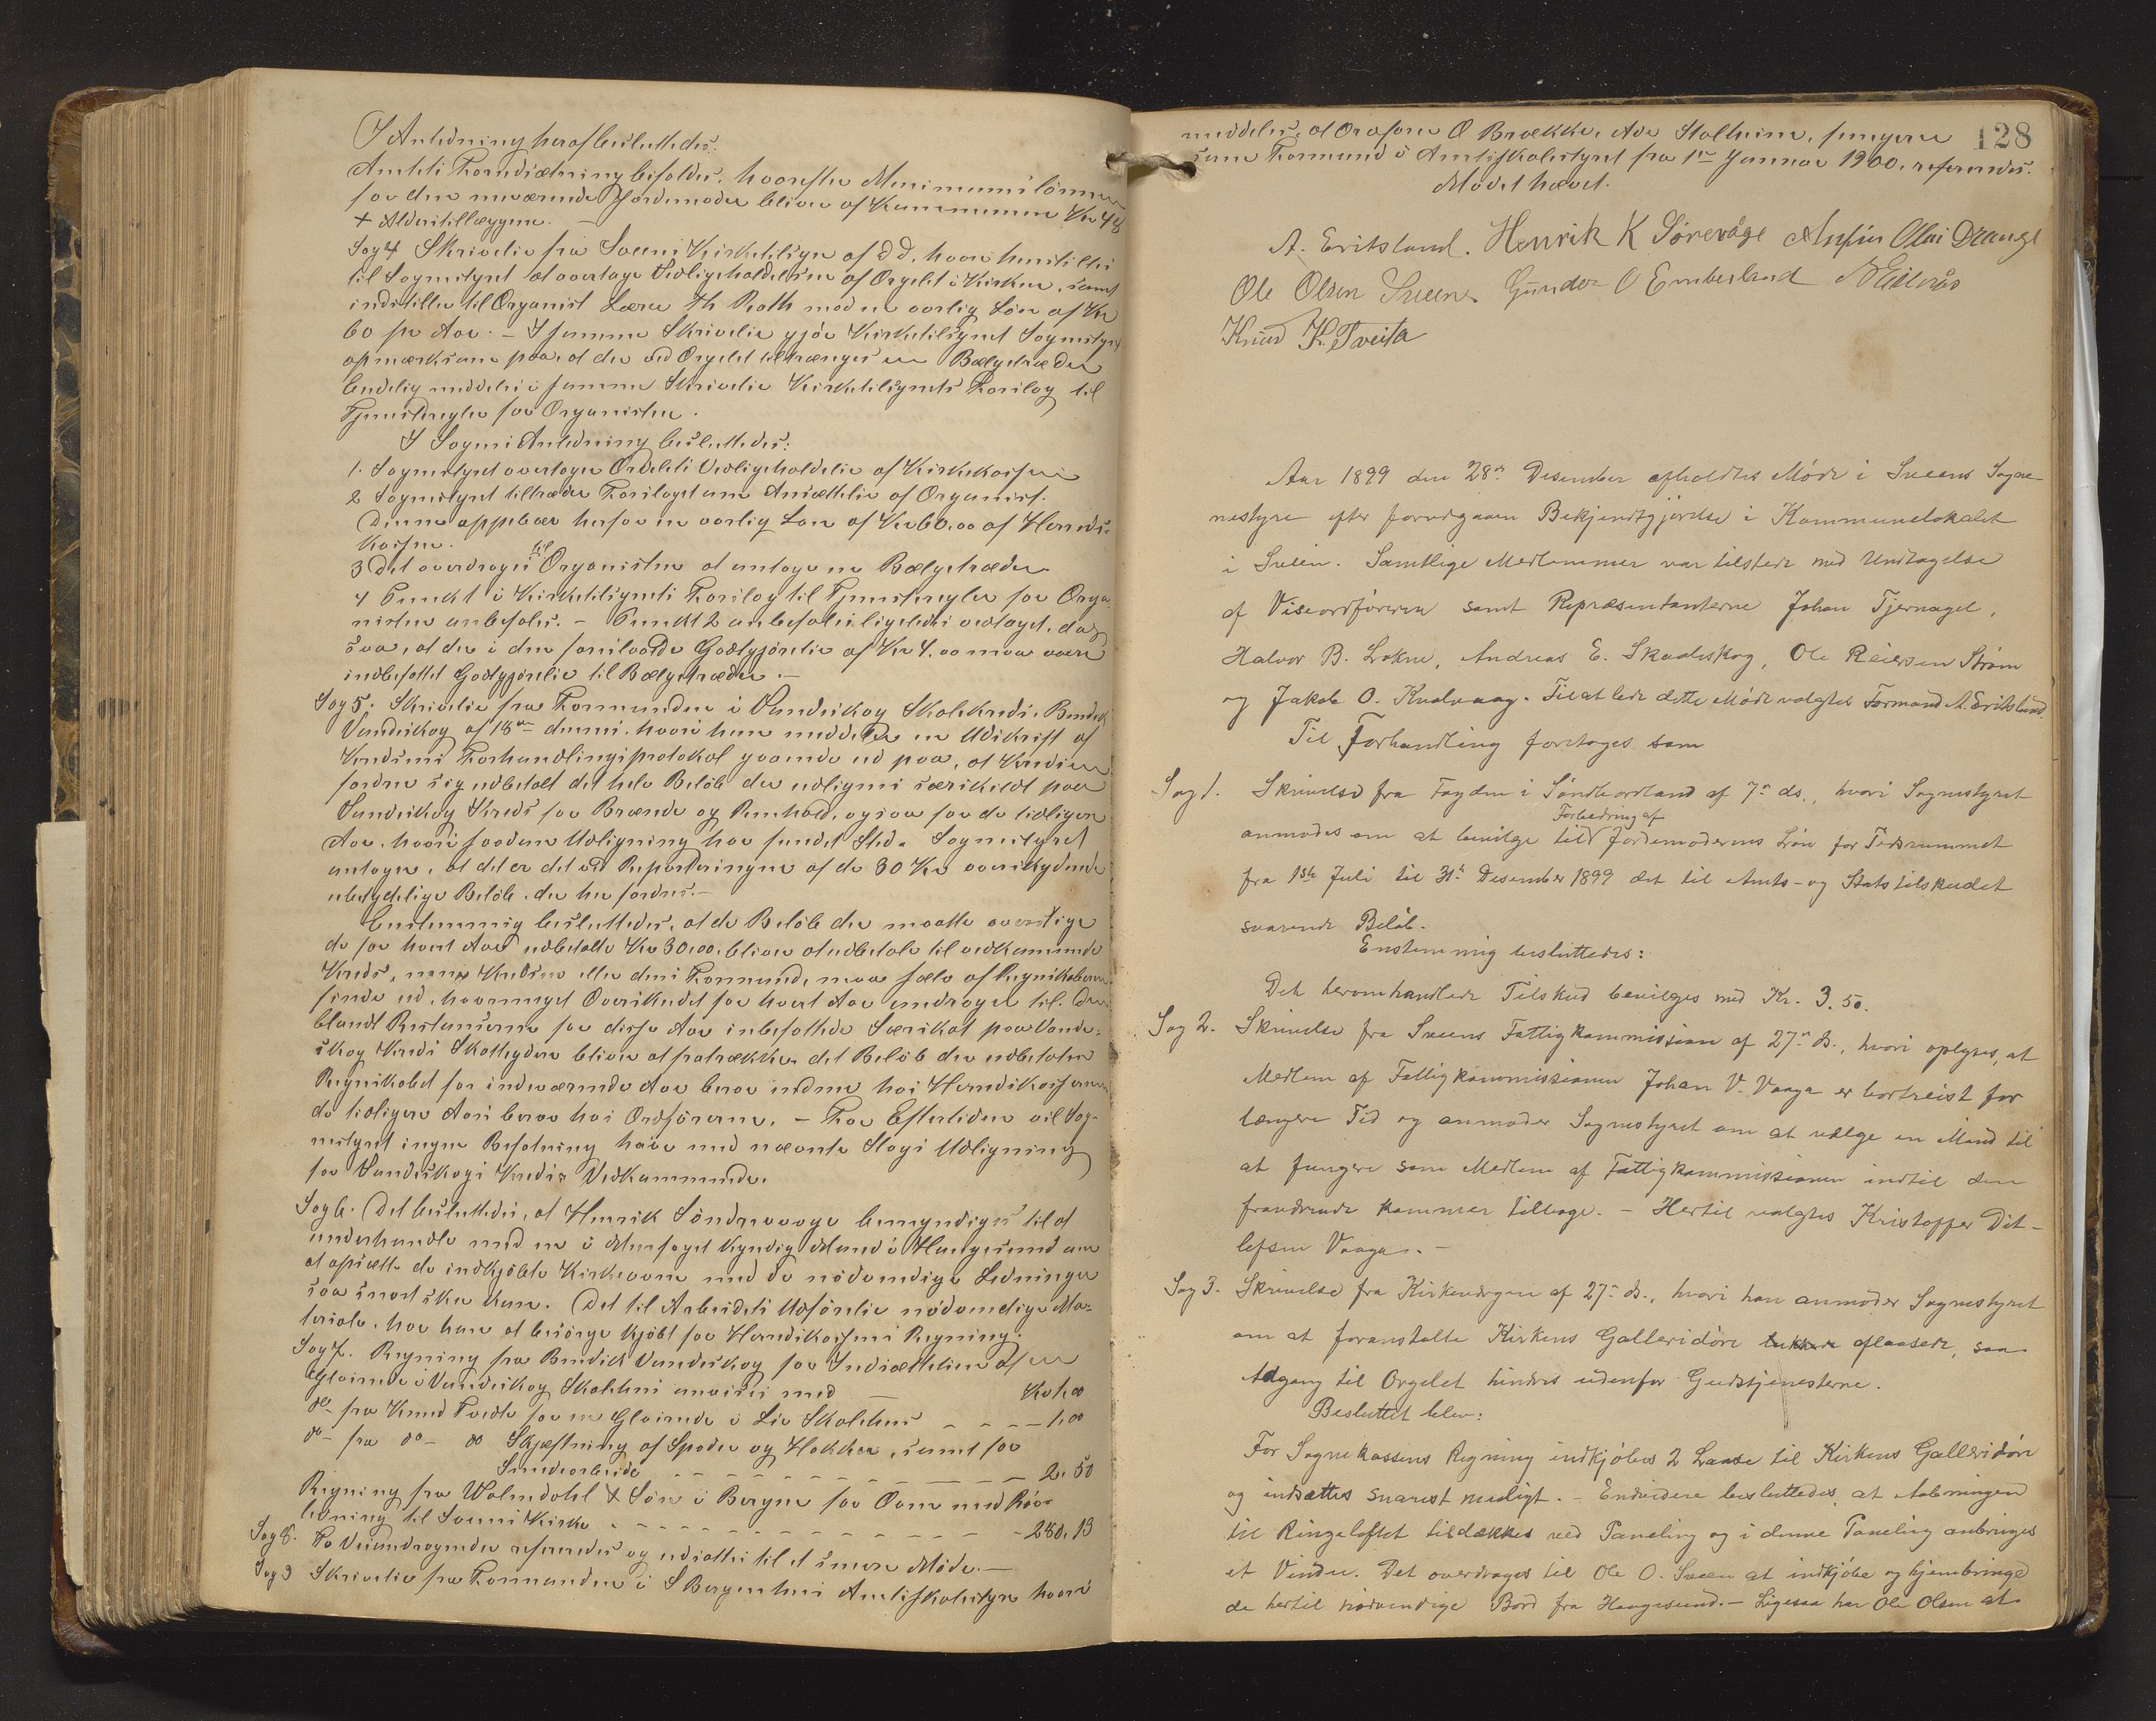 I Anledning heraf besluttedes:
Amtets Foranstaltning befales, hvorefter Minimumslønnen
for den nuværende Jordemoder bliver af Kommunen Kr 48
+ Alderstillæggene.
Sag 4 Skrivelse fra Sveens Kirketilsyn af D. D. hvori henstilles
til Sognestyret at overtage Vedligeholdelsen af Orgelet i Kirken, samt
indstiller til Organist Lærer Th Roth mod en aarlig Løn af Kr
60 pr Aar. – I samme Skrivelse gjør Kirketilsynet Sognestyret
opmærksom paa, at der ved Orgelet tiltrænges en Bælgetræder
Endelig meddeles i samme Skrivelse Kirketilsynets Forslag til
Tjenstregler for Organisten.
I Sagens Anledning besluttedes:
1. Sognestyret overtager Orgelets Vedligeholdelse af Kirkekassen
2 Sognestyret tiltræder Forslaget om Ansættelse af Organist.
Denne oppebær herfor en aarlig Løn af Kr 60,00 af Herreds-
kassen.
3 Det overdrages til Organisten at antage en Bælgetræder
4 Punkt 1 i Kirketilsynets Forslag til Tjenstregler for Orga-
nisten anbefales. – Punkt 2 anbefales ligeledes vedtaget, dog
saa, at der i den foreslaaede Godtgjørelse af Kr 4.00 maa være
indbefattet Godtgjørelse til Bælgetræder. –
Sag 5. Skrivelse fra Formanden i Vandaskog Skolekreds, Bendik
Vandaskog af 18de dennes, hvori han meddeler en Udskrift af
Kredsens Forhandlingsprotokol gaaende ud paa, at Kredsen
fordrer sig udbetalt det hele Beløb der udlignes særskildt paa
Vandaskog Kreds for Brænde og Renhold, ogsaa for de tidligere
Aar, hvori saadan Udligning har fundet Sted. Sognestyret
antager, at det er det ved Reparteringen af de 30 Kr overskydende
ubetydelige Beløb, der her fordres. –
Enstemmig besluttedes, at de Beløb der maatte overstige
de for hvert Aar udbetalte Kr 30.00, bliver at udbetale til vedkommende
Kreds, men Kredsen eller dens Formand, maa selv af Regnskaberne
finde ud, hvormeget Overskudet for hvert Aar andraget til. Den
blandt Restancerne for disse Aar inbefattede Særskat paa Vanda-
skog Kreds Skatteydere bliver at fratrække det Beløb der udbetales
Regnskabet for indeværende Aar beror endnu hos Herredskassereren
de tidligere Aars beror hos Ordføreren. – For Eftertiden vil Sog-
nestyret ingen Befatning have med nævnte Slags Udligning
for Vandaskogs Kreds Vedkommende.
Sag 6. Det besluttedes, at Henrik Søndrevaage bemyndiges til at
underhandle med en i Murfaget kyndig Mand i Haugesund om
at opsætte de indkjøbte Kirkeovne med de nødvendige Ledninger
saa snart ske kan. Det til Arbeidets Udførelse nødvendige Ma-
teriale, har han at besørge kjøbt for Herredskassens Regning.
Sag 7. Regning fra Bendick Vandaskog for Indsættelsen af en
Glasrude i Vandaskog Skolehus anvises med – Kr 1.00
do fra Knud Tveita for en Glasrude i Lie Skolehus – – – 1.00
do – fra do – do Skjæftning af Spader og Hakker, samt for
Smedearbeide – – – – – – – – 2.50
Regning fra Walendahl & Søn i Bergen for Ovne med Rør-
ledning til Sveens Kirke – – – – – – – – 280,13
Sag 8. To Veiandragender refereredes og udsattes til et senere Møde. –
Sag 9 Skrivelse fra Formanden i S Bergenhus Amtsskolestyre hvori
128
meddeles, at Ordfører O Brække, Adr Stalheim, fungerer
som Formand i Amtsskolestyret fra 1ste Januar 1900, refereredes.
Mødet hævet.
A. Eriksland. Henrik K Sørevåge Anfin Olai Drange
Ole Olsen Sveen. Gunder O Emberland
Knud K. Tveita
Aar 1899 den 28de Desember afholdtes Møde i Sveens Sogne-
nestyre efter forudgaaen Bekjendtgjørelse i Kommunelokalet
i Sveen. Samtlige Medlemmer var tilstede med Undtagelse
af Viseordføreren samt Repræsentanterne Johan Tjernagel,
Halvor B. Lokne, Andreas E. Skaaleskog, Ole Reiersen Strøm
og Jakob O. Kvalvaag. Til at lede dette Møde valgtes Formand A. Erikslund.
Til Forhandling foretoges som
Sag 1. Skrivelse fra Fogden i Søndhordland af 7de ds., hvori Sognestyret
anmodes om at bevilge til Forbedring af Jordemoderens Løn for Tidsrummet
fra 1ste Juli til 31te Desember 1899 det til Amts- og Statstilskudet
svarende Beløb.
Enstemmig besluttedes:
Det heromhandlede Tilskud bevilges med Kr. 3.50.
Sag 2. Skrivelse fra Sveens Fattigkommission af 27de ds., hvori oplyses, at
Medlem af Fattigkommissionen Johan V. Vaaga er bortreist for
længere Tid og anmoder Sognestyret om at vælge en Mand til
at fungere som Medlem af Fattigkommissionen indtil den
fraværende kommer tilbage. – Hertil valgtes Kristoffer Dit-
lefsen Vaaga. –
Sag 3. Skrivelse fra Kirkeværgen af 27de ds., hvori han anmoder Sognestyret
om at foranstalte Kirkens Galleridøre aflaasede, saa
Adgang til Orgelet hindres udenfor Gudstjenesterne.
Besluttet blev:
For Sognekassens Regning indkjøbes 2 Laase til Kirkens Galleridøre
og indsættes snarest muligt. – Endvidere besluttedes, at Aabningen
til Ringeloftet tildækkes ved Paneling og i denne Paneling anbringes
et Vindu. Det overdrages til Ole O. Sveen at indkjøbe og hjembringe
de hertil nødvendige Bord fra Haugesund. – Ligesaa har Ole Olsen at